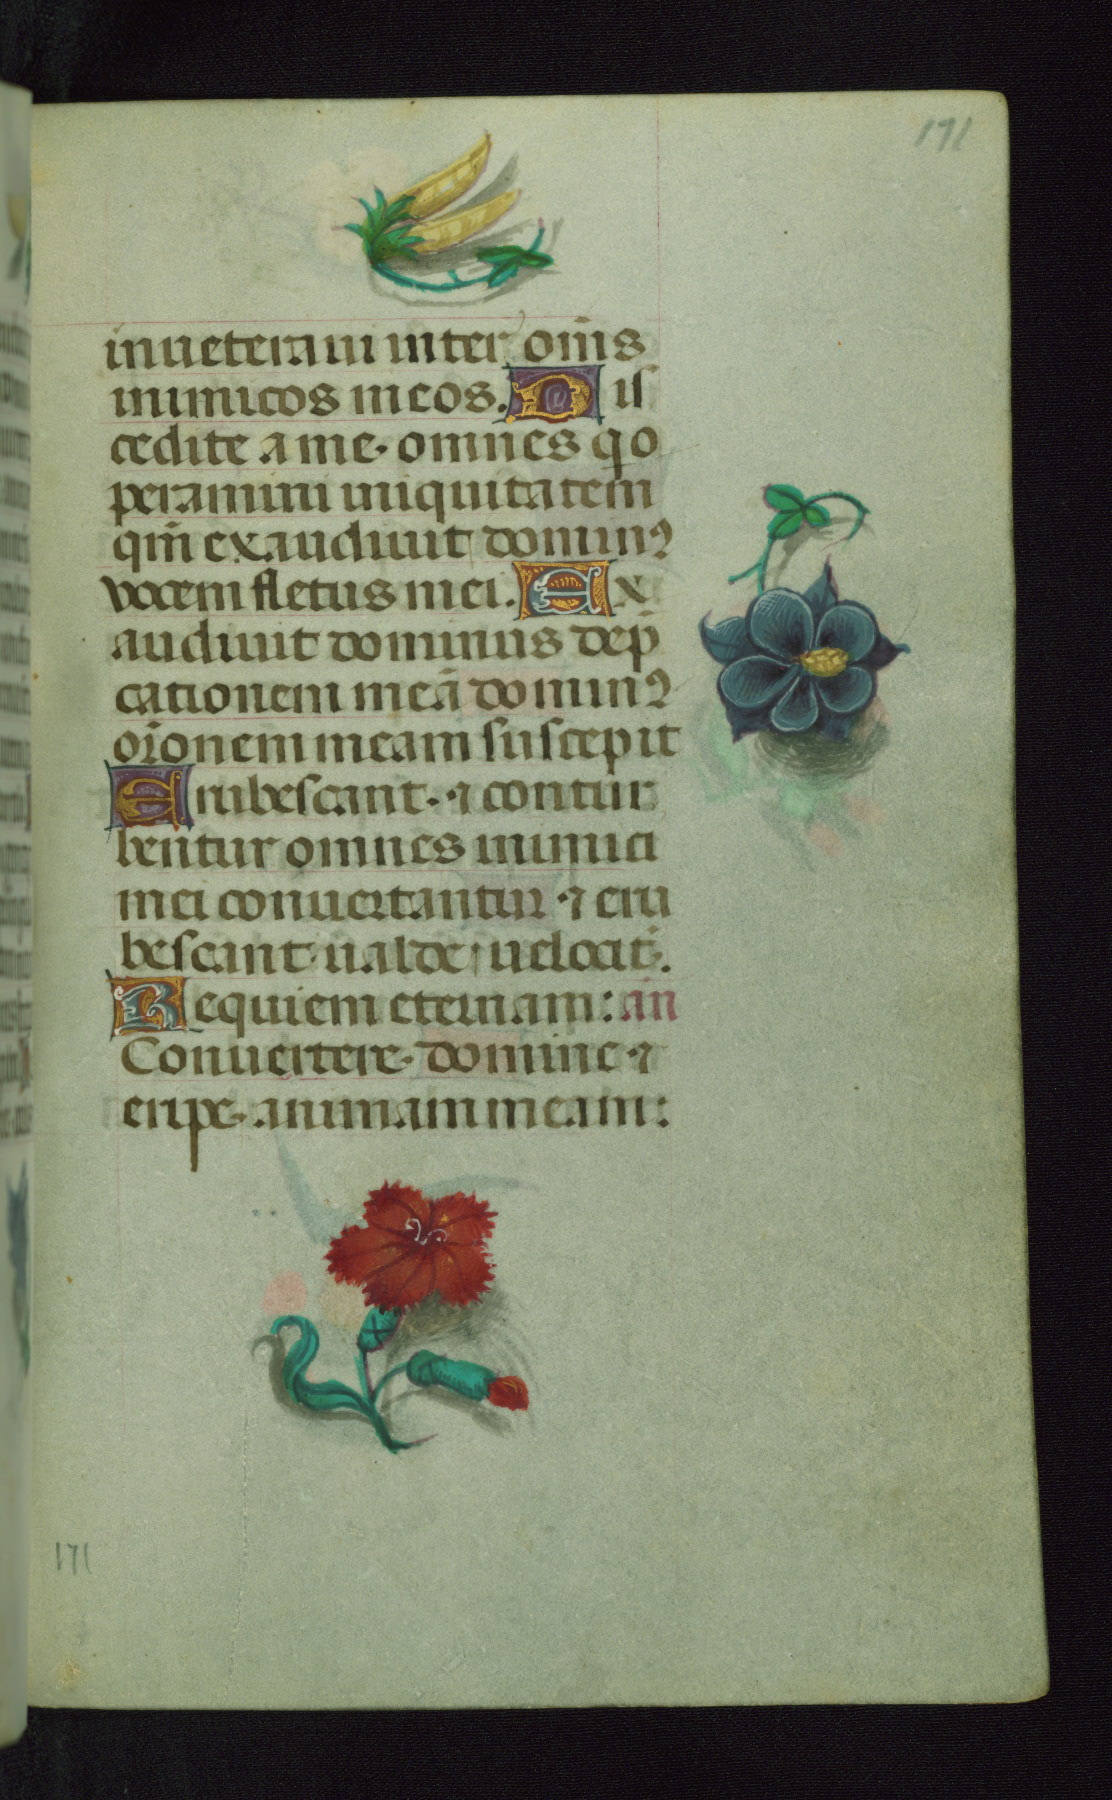 171
inueteraui inter om̄s
inimicos meos. Dis
cedite a me. omnes qͥ o
peramini iniquitatem
qm̄ exaudiuit dominꝰ
vocem fletus mei. Ex
audiuit dominus dep̄
cationem meā dominꝰ
or̄onem meam suscepit
Erubescant. ⁊ contur
bentur omnes inimici
mei conuertantur ⁊ eru
bescant ualde uelocit̄.
Requiem eternam: an̄
Conuertere. domine ⁊
eripe. animam meam:
171